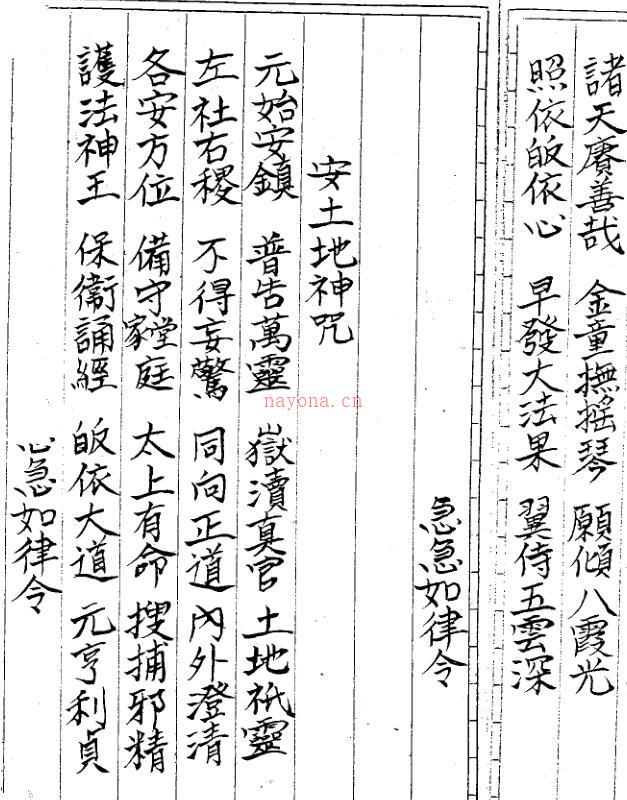 諸天賡善哉 金童撫搖琴 願傾八霞光
照依皈依心 早發大法果 翼侍五雲深
急急如律令
安土地神咒
元始安鎮 普告萬靈 嶽瀆真官 土地祇靈
左社右稷 不得妄驚 同向正道 內外澄清
各安方位 備守家堂庭 太上有命 搜捕邪精
護法神王 保衛誦經 皈依大道 元亨利貞
急如律令
nayona.cn